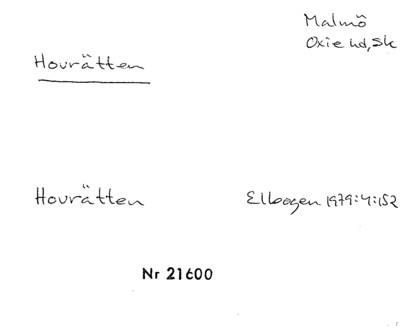 Malmö
Oxie hd, Sk
Hovrätten
Hovrätten
Elbogen 1979:4:152
Nr 21600